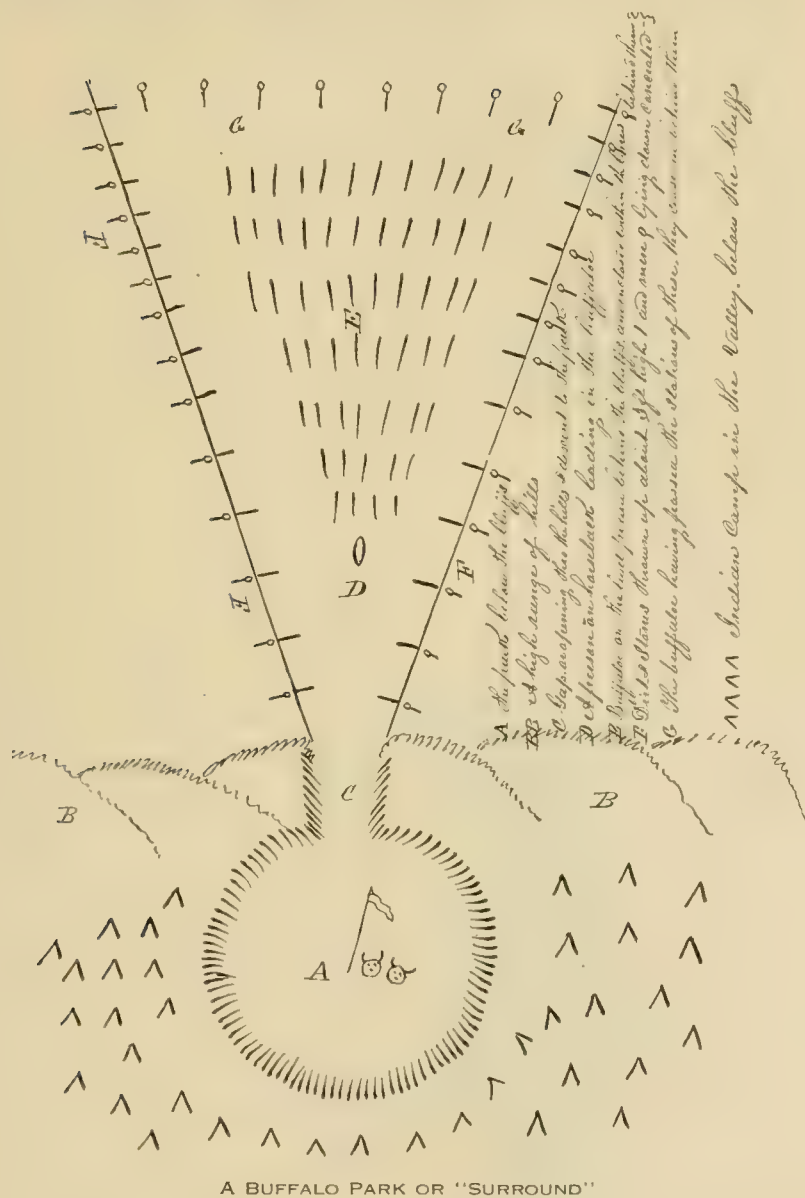 G
G
F
E
D
F
F
C
B
B
A
A The park below the bluffs
BB A high range of hills
C Gap or opening thro the hills & descent to the park
D A person on horseback leading in the buffaloe
E Buffaloe on the
F Dirt & Stones thrown up about high & men lying down concealed
G The buffaloe having passed the stations of these, they close in behind them
Indian Camp in the Valley, below the bluffs
A BUFFALO PARK OR "SURROUND"